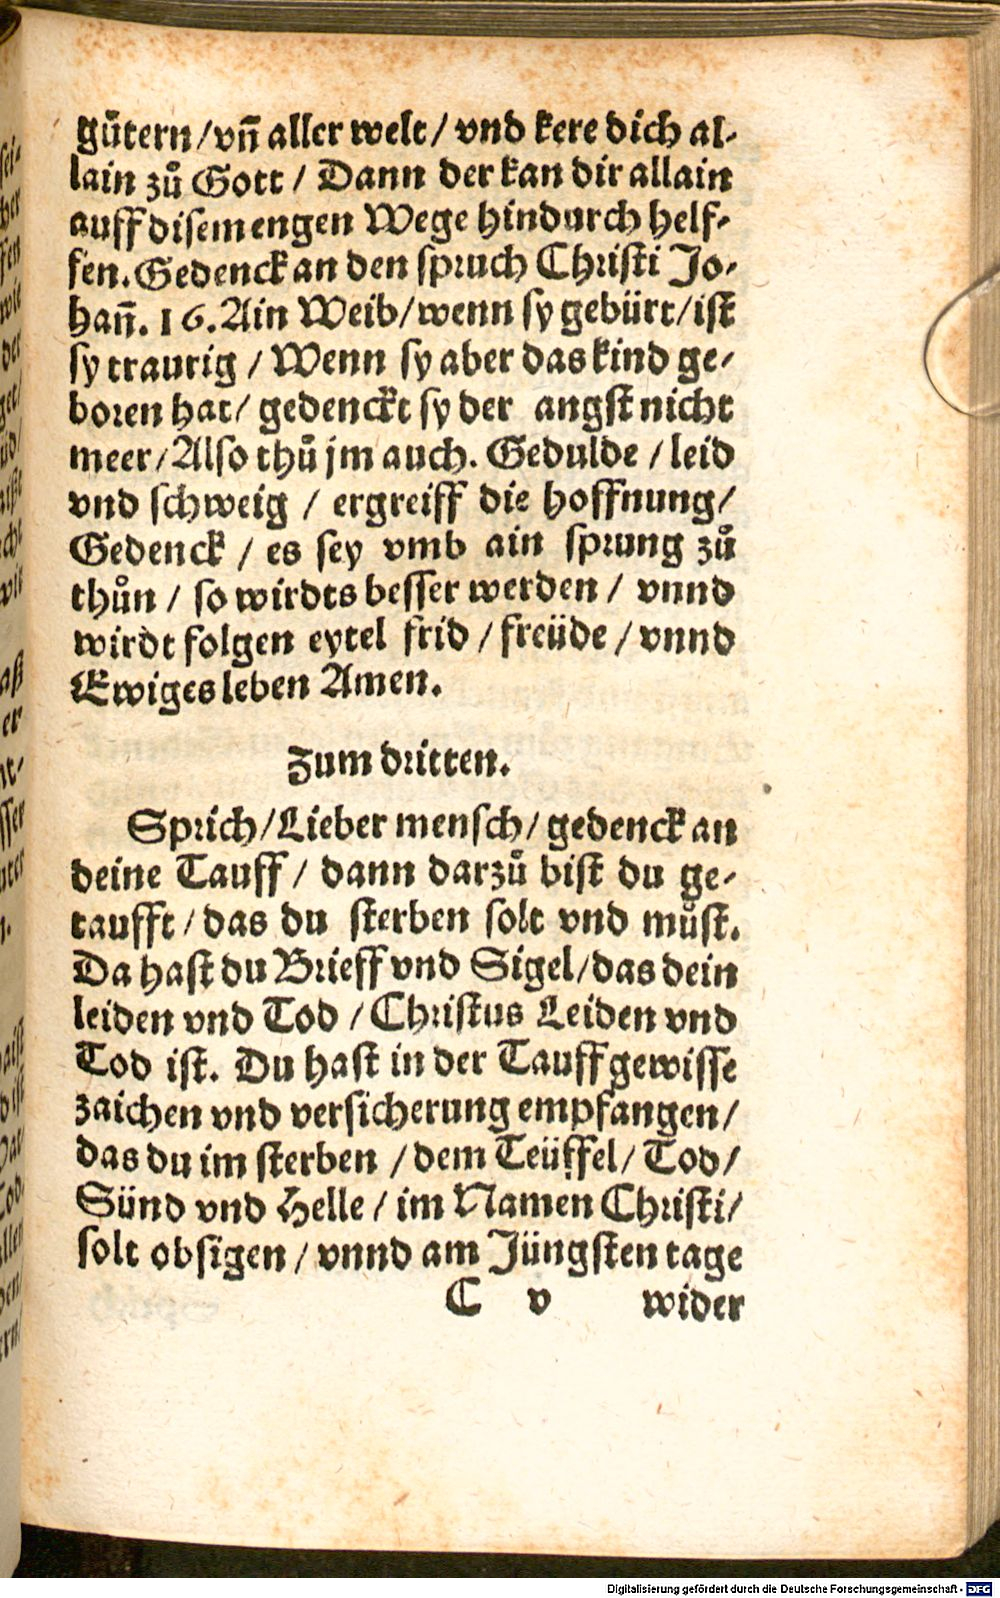 gůtern/vñ aller welt/vnd kere dich al-
lain zů Gott/Dann der kan dir allain
auff disem engen Wege hindurch helf-
fen. Gedenck an den spruch Christi Jo-
hañ. 16. Ain Weib/wenn sy gebürt/ist
sy traurig/Wenn sy aber das kind ge-
boren hat/gedenckt sy der angst nicht
meer/Also thů jm auch. Gedulde/leid
vnd schweig/ergreiff die hoffnung/
Gedenck/es sey vmb ain sprung zů
thůn/so wirdts besser werden/vnnd
wirdt folgen eytel frid/freüde/vnnd
Ewiges leben Amen.
Zum dritten.
Sprich/Lieber mensch/gedenck an
deine Tauff/dann darzů bist du ge-
taufft/das du sterben solt vnd můst.
Da hast du Brieff vnd Sigel/das dein
leiden vnd Tod/Christus Leiden vnd
Tod ist. Du hast in der Tauff gewisse
zaichen vnd versicherung empfangen/
das du im sterben/dem Teüffel/Tod/
Sünd vnd Helle/im Namen Christi/
solt obsigen/vnnd am Jüngsten tage
C v wider
Digitalisierung gefördert durch die Deutsche Forschungsgemeinschaft - DFG